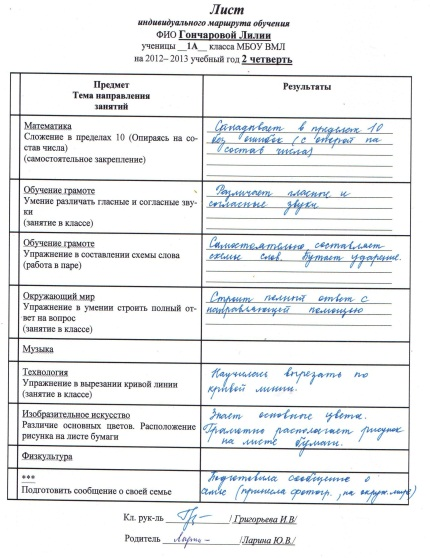 Лист
индивидуального маршрута обучения
ФИО Гончаровой Лилии
ученицы __1А__ класса МБОУ ВМЛ
на 2012– 2013 учебный год 2 четверть
Предмет
Тема направления
занятий
Результаты
Математика
Сложение в пределах 10 (Опираясь на со-
став числа)
(самостоятельное закрепление)
Складывает в пределах 10
без ошибок (с опорой на
состав числа)
Обучение грамоте
Умение различать гласные и согласные зву-
ки
(занятие в классе)
Различает гласные и
согласные звуки
Обучение грамоте
Упражнение в составлении схемы слова
(работа в паре)
Самостоятельно составляет
схемы слов. Путает ударение.
Окружающий мир
Упражнение в умении строить полный от-
вет на вопрос
(занятие в классе)
Строит полный ответ с
направляющей помощью
Музыка
Технология
Упражнение в вырезании кривой линии
(занятие в классе)
Научилась вырезать по
кривой линии.
Изобразительное искусство
Различие основных цветов. Расположение
рисунка на листе бумаги
Знает основные цвета.
Грамотно располагает рисунок
на листе бумаги.
Физкультура
***
Подготовить сообщение о своей семье
Подготовила сообщение о
семье (принесла фотогр., на окруж. мире)
Кл. рук-ль / Григорьева И.В/
Родитель /Ларина Ю.В./